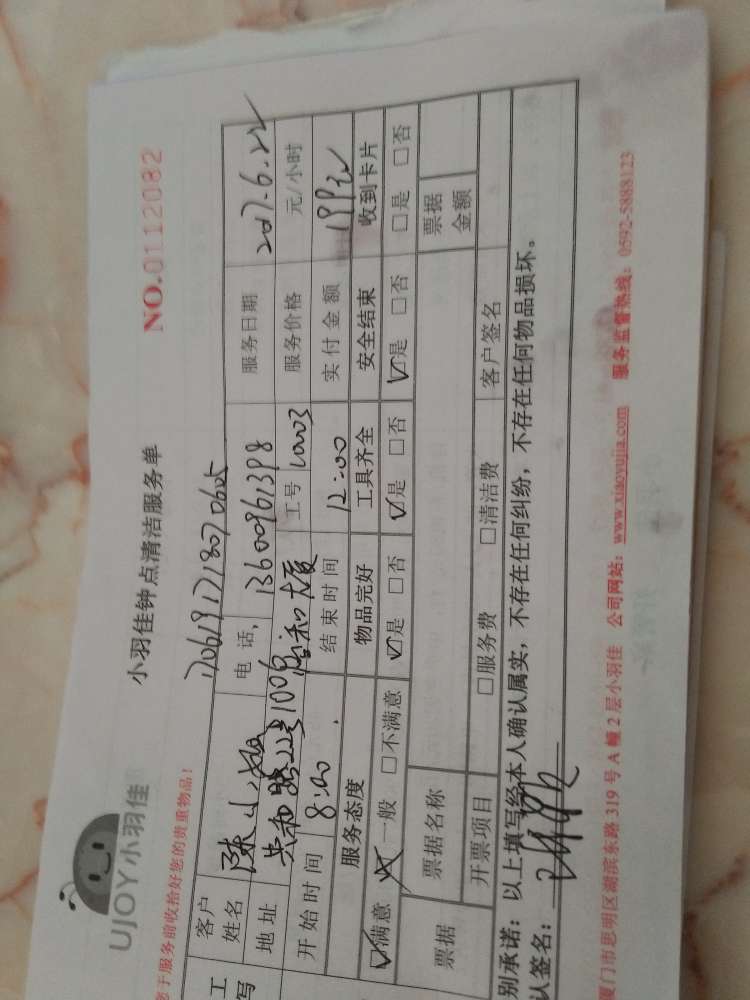 UJOY小羽佳
小羽佳钟点清洁服务单
NO.0112082
您于服务前收拾好您的贵重物品!
客户姓名 陈小
电话, 13600961398
服务日期 2017.6.22
地址 100号 大厦
工号
服务价格 元/小时
开始时间 8:00
结束时间 12:00
实付金额 199元
服务态度 物品完好 工具齐全 安全结束 收到卡片
☑满意 一般 □不满意 ☑是 □否 ☑是 □否 ☑是 □否 □是 □否
票据 票据名称 票据金额
开票项目 □服务费 □清洁费 客户签名
别承诺：以上填写经本人确认属实，不存在任何纠纷，不存在任何物品损坏。
认签名：
厦门市思明区湖滨东路 319 号 A 幢 2 层小羽佳 公司网站：www.xiaoyujia.com 服务监督热线：0592-5888123